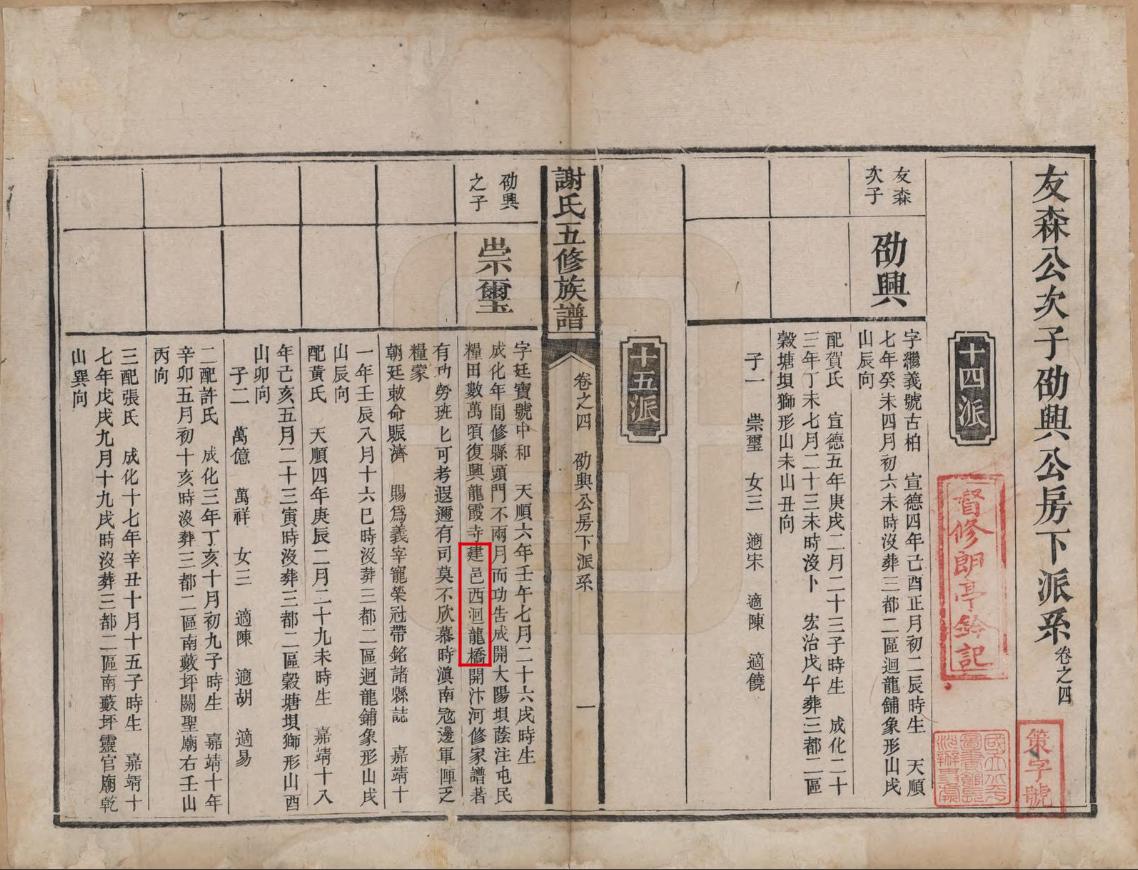 友森公次子劭興公房下派系卷之四
十四派
友森
次子
劭興
字繼義號古柏 宣德四年己酉正月初二辰時生 天順
七年癸未四月初六未時沒葬三都二區迴龍舖象形山戌
山辰向
配賀氏 宣德五年庚戌二月二十三子時生 成化二十
三年丁未七月二十三未時沒卜 宏治戊午葬三都二區
穀塘垻獅形山未山丑向
子一 崇璽 女三 適宋 適陳 適饒
十五派
謝氏五修族譜
卷之四 劭興公房下派系 一
劭興
之子
崇璽
字廷寶號中和 天順六年壬午七月二十六戌時生
成化年間修縣頭門不兩月而功告成開大陽垻蔭注屯民
糧田數萬頃復興龍霞寺建邑西洄龍橋開汴河修家譜著
有功勞班匕可考遐邇有司莫不欣慕時滇南寇邊軍陣乏
糧蒙
朝廷敕命賑濟 賜爲義宰寵榮冠帶銘諸縣誌 嘉靖十
一年壬辰八月十六巳時沒葬三都二區迴龍舖象形山戌
山辰向
配黃氏 天順四年庚辰二月二十九未時生 嘉靖十八
年己亥五月二十三寅時沒葬三都二區穀塘垻獅形山酉
山卯向
子二 萬億 萬祥 女三 適陳 適胡 適易
二配許氏 成化三年丁亥十月初九子時生 嘉靖十年
辛卯五月初十亥時沒葬三都二區南藪坪關聖廟右壬山
丙向
三配張氏 成化十七年辛丑十月十五子時生 嘉靖十
七年戊戌九月十九戌時沒葬三都二區南藪坪靈官廟乾
山巽向
督修朗亭鈴記
策字號